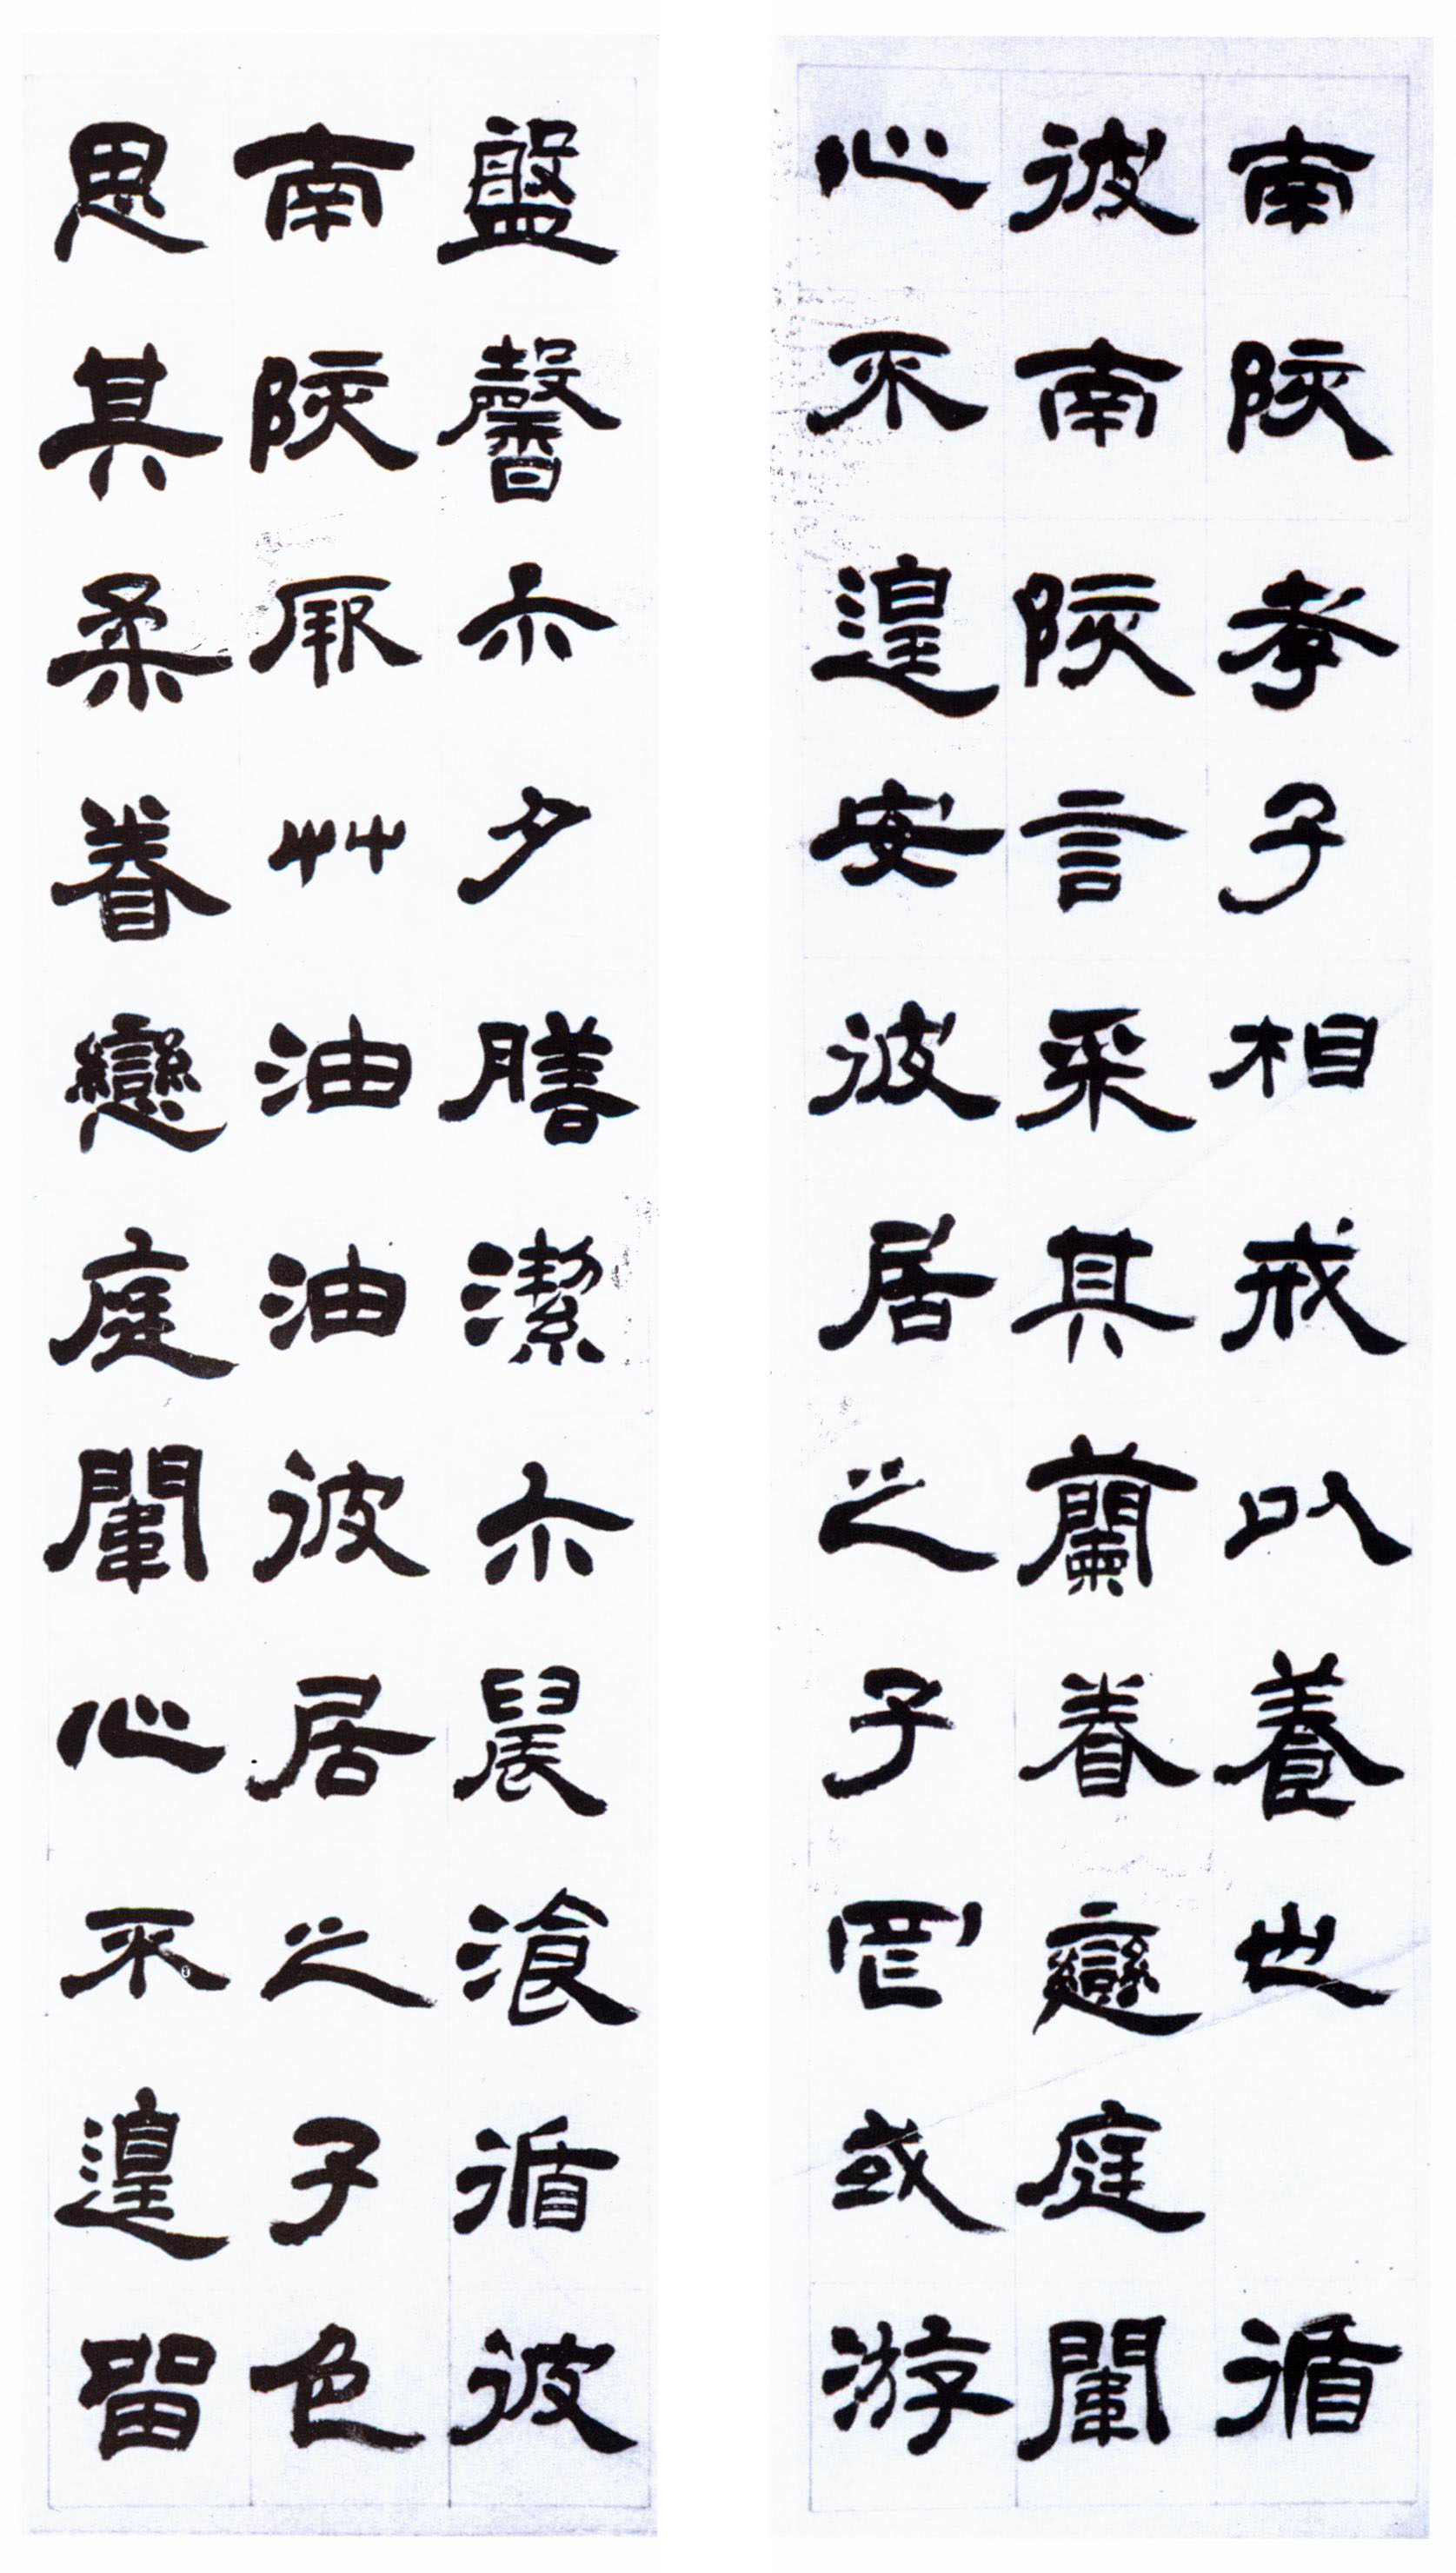 南陔孝子相戒以養也循
彼南陔言采其蘭眷戀庭闈
心不遑安彼居之子罔或游
盤馨尒夕膳潔尒晨湌循彼
南陔厥艸油油彼居之子色
思其柔眷戀庭闈心不遑留